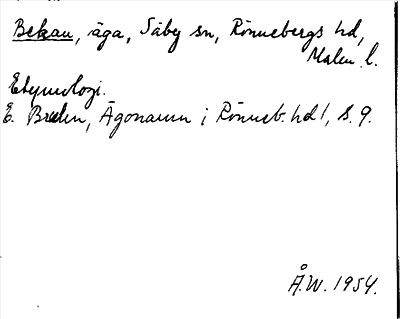 Bekan, äga, Säby sn, Rönnebergs hd,
Malm. l.
Etymologi.
E. Brelin, Ägonamn i Rönneb. hd 1, s. 9.
Å.W. 1954.